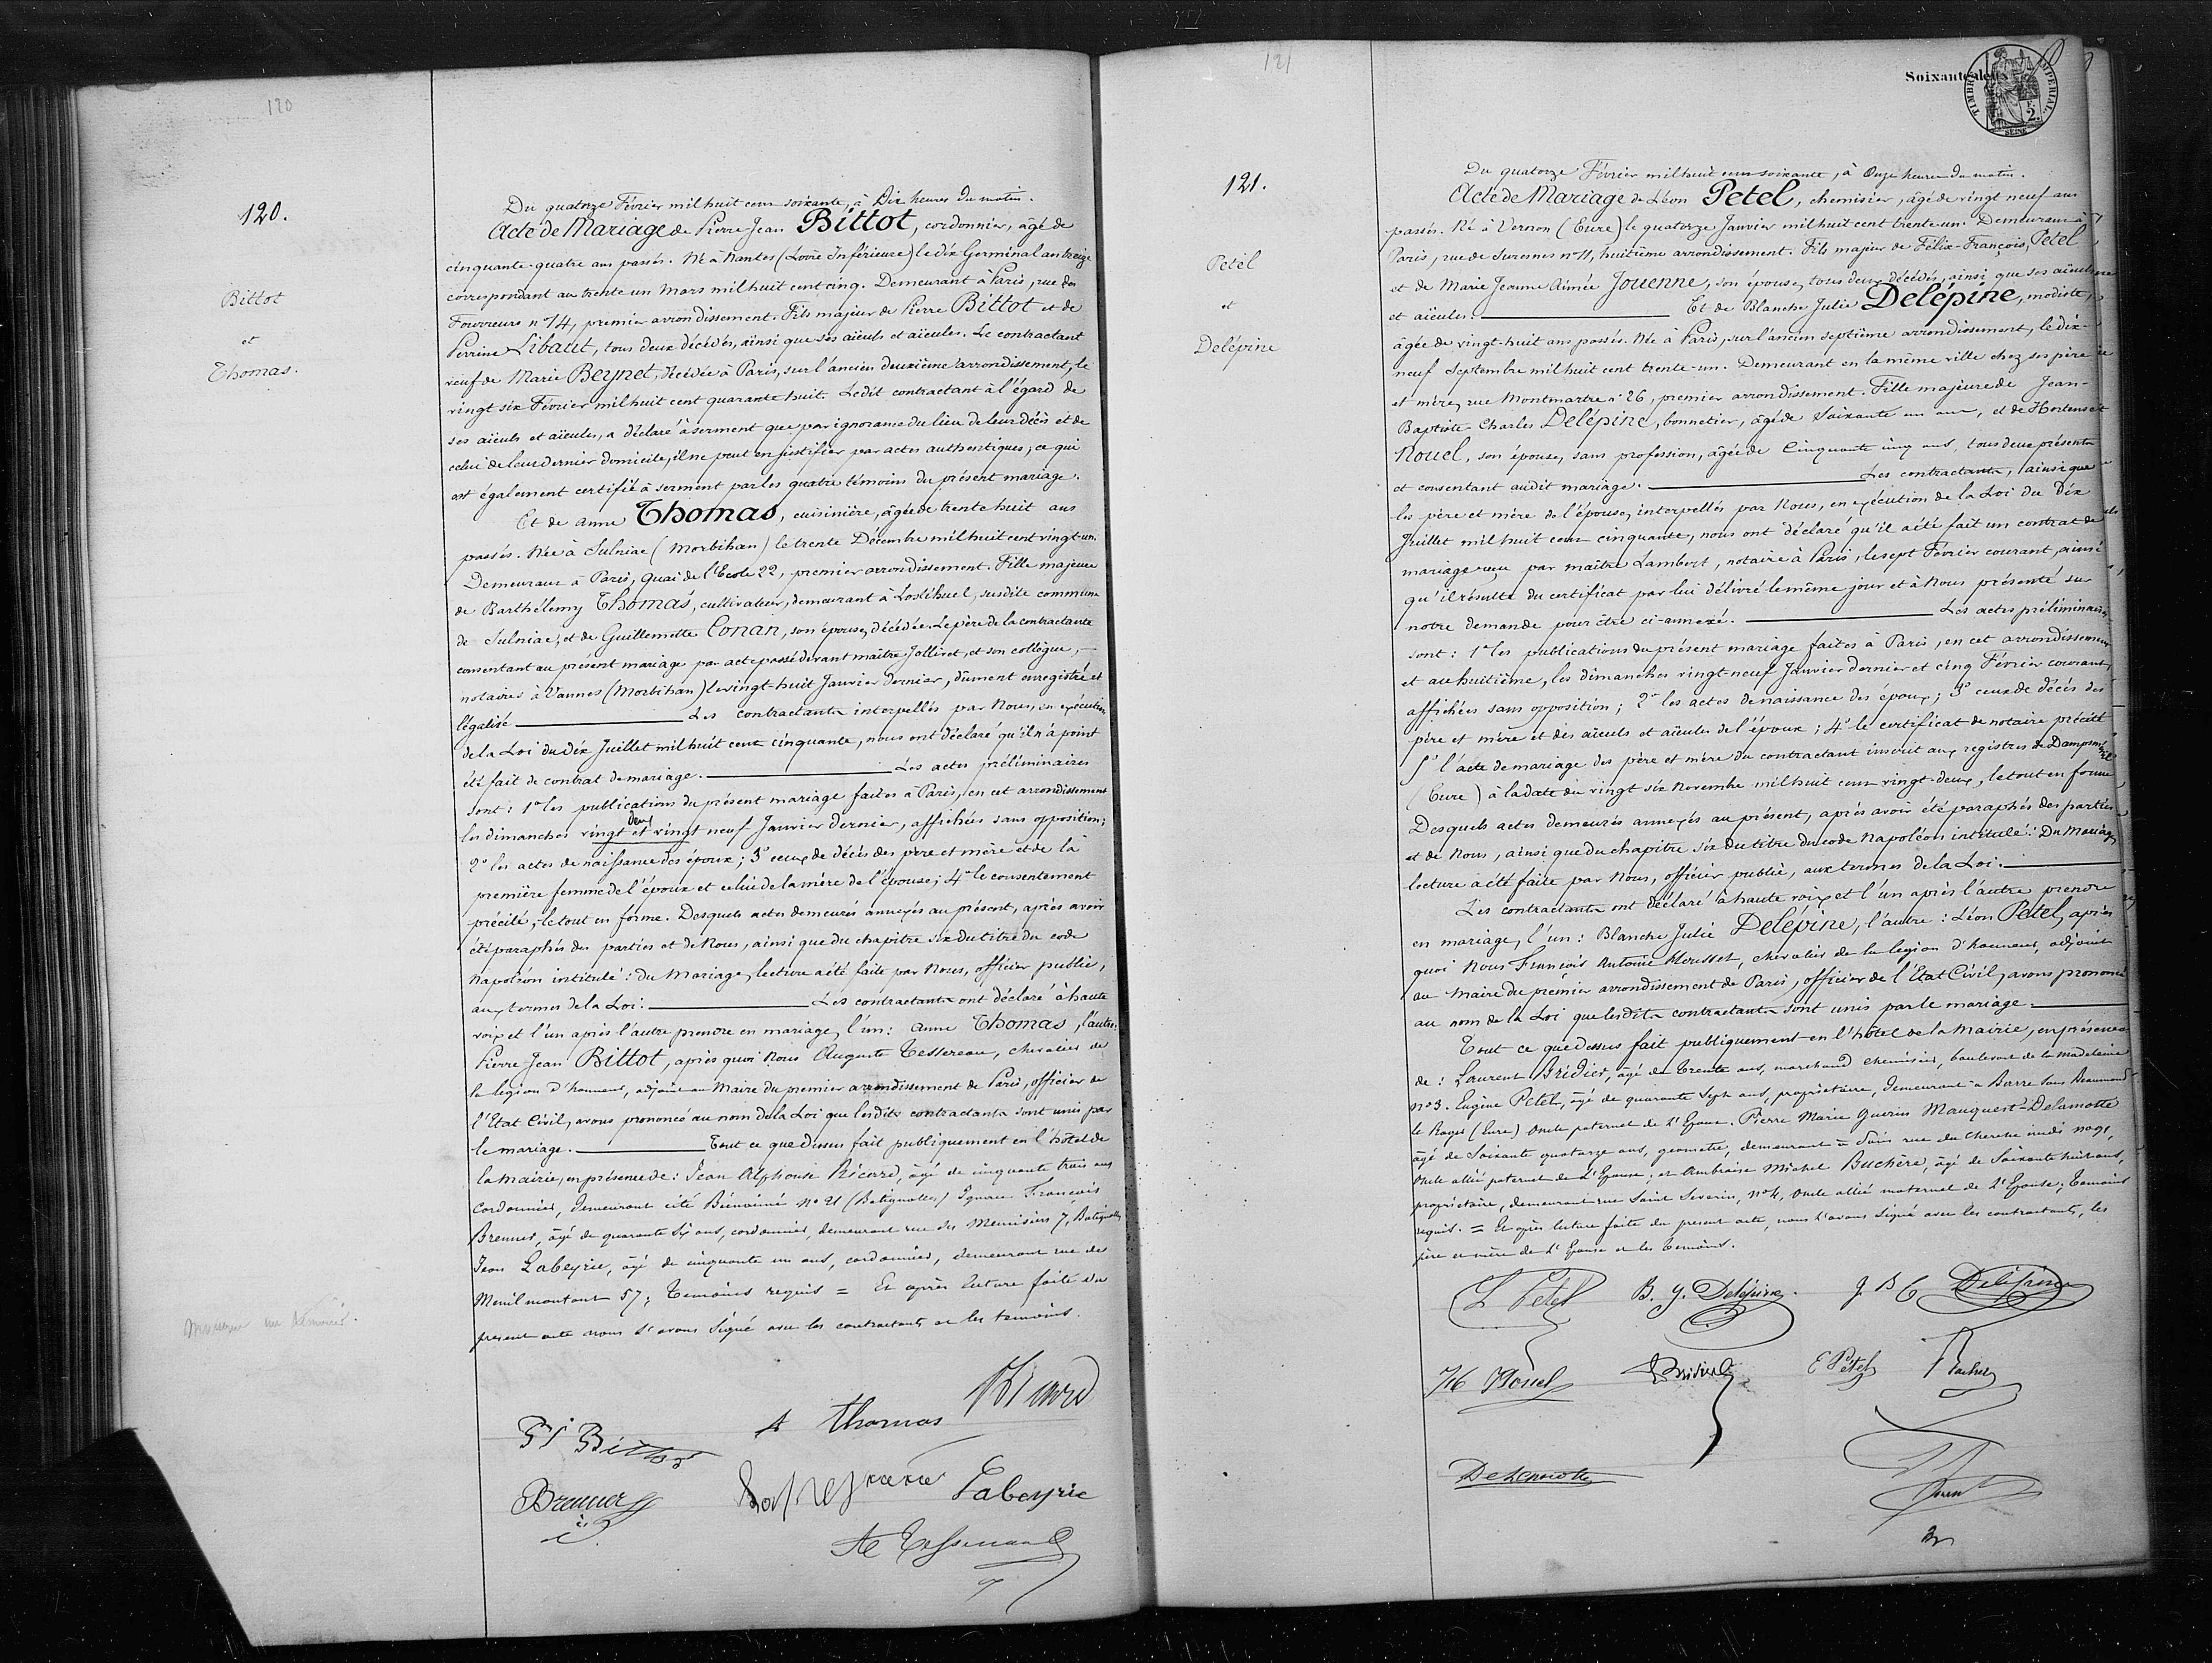 120
120.
Bittot
et
Thomas.
Du quatorze Février mil huit cent soixante, à Dix heures du matin.
Acte de Mariage de Pierre Jean Bittot, cordonnier, âgé de
cinquante-quatre ans passés. Né à Nantes (Loire Inférieure) le dix Germinal an treize
correspondant au trente un Mars mil huit cent cinq. Demeurant à Paris, rue des
Fourreurs n° 14, premier arrondissement. Fils majeur de Pierre Bittot et de
Perrine Libaut, tous deux décédés, ainsi que ses aïeuls et aïeules. Le contractant
veuf de Marie Beynet, décédée à Paris, sur l'ancien deuxième arrondissement, le
vingt six Février mil huit cent quarante huit. Ledit contractant à l'égard de
ses aïeuls et aïeules, a déclaré à serment que par ignorance du lieu de leur décès et de
celui de leur dernier domicile, il ne peut en justifier par actes authentiques, ce qui
est également certifié à serment par les quatre témoins du présent mariage.
Et de Anne Thomas, cuisinière, âgée de trente huit ans
passés. Née à Sulniac (Morbihan) le trente Décembre mil huit cent vingt-un.
Demeurant à Paris, quai de l'Ecole 22, premier arrondissement. Fille majeure
de Barthélemy Thomas, cultivateur, demeurant à Losléhuel, susdite commune
de Sulniac, et de Guillemette Conan, son épouse, décédée. Le père de la contractante
consentant au présent mariage par acte passé devant maître Jollivet, et son collègue,
notaires à Vannes (Morbihan) le vingt-huit Janvier dernier, dûment enregistré et
légalisé Les contractants interpellés par Nous, en exécution
de la Loi du dix Juillet mil huit cent cinquante, nous ont déclaré qu'il n'a point
été fait de contrat de mariage. Les actes préliminaires
sont : 1° les publications du présent mariage faites à Paris, en cet arrondissement
les dimanches vingt deux et vingt neuf Janvier dernier, affichées sans opposition ;
2° les actes de naissance des époux ; 3° ceux de décès des père et mère et de la
première femme de l'époux et celui de la mère de l'épouse ; 4° le consentement
précité, le tout en forme. Desquels actes demeurés annexés au présent, après avoir
été paraphés des parties et de Nous, ainsi que du chapitre six du titre du code
Napoléon intitulé : du Mariage, lecture a été faite par Nous, officier public,
aux termes de la Loi. Les contractants ont déclaré à haute
voix et l'un après l'autre prendre en mariage, l'un : Anne Thomas, l'autre :
Pierre Jean Bittot, après quoi Nous Auguste Tessereau, chevalier de
la legion d'honneur, adjoint au Maire du premier arrondissement de Paris, officier de
l'Etat Civil, avons prononcé au nom de la Loi que lesdits contractants sont unis par
le mariage. Tout ce que dessus fait publiquement en l'hôtel de
la Mairie, en présence de : Jean Alphonse Ricard, âgé de cinquante trois ans
Cordonnier, demeurant cité Bienaimé no 21 (Batignolles) Ignace François
Brenner, âgé de quarante Six ans, cordonnier, demeurant rue des Meuniers 7, Batignolles
Jean Labeyrie, âgé de cinquante un ans, cordonnier, demeurant rue de
Menilmontant 57 ; Temoins requis = Et après lecture faite du
present acte nous l'avons Signé avec les contractants et les temoins.
Manque un témoin.
PJ Bittot
A Thomas
Ricard
Brenner
Labeyrie
Ae Tessereau
121
Soixante deux
TIMBRE IMPERIAL
2.
SEINE
121.
Petel
et
Delépine
Du quatorze Février mil huit cent soixante, à Onze heures du matin.
Acte de Mariage de Léon Petel, chemisier, âgé de vingt neuf ans
passés. Né à Vernon (Eure) le quatorze Janvier mil huit cent trente-un. Demeurant à
Paris, rue de Suresnes n° 11, huitième arrondissement. Fils majeur de Félix-François, Petel
et de Marie Jeanne Aimée Jouenne, son épouse, tous deux décédés, ainsi que ses aïeuls
et aïeules. Et de Blanche Julie Delépine, modiste,
âgée de vingt-huit ans passés. Née à Paris, sur l'ancien septième arrondissement, le dix-
neuf Septembre mil huit cent trente-un. Demeurant en la même ville chez ses père
et mère, rue Montmartre n° 26, premier arrondissement. Fille majeure de Jean-
Baptiste Charles Delépine, bonnetier, âgé de Soixante un ans, et de Hortense
Nouel, son épouse, sans profession, âgée de Cinquante cinq ans, tous deux présents
et consentant audit mariage. Les contractants, ainsi que
les père et mère de l'épouse, interpellés par Nous, en exécution de la Loi du Dix
Juillet mil huit cent cinquante, nous ont déclaré qu'il a été fait un contrat de
mariage reçu par maître Lambert, notaire à Paris, le sept Février courant, ainsi
qu'il résulte du certificat par lui délivré le même jour et à Nous présenté sur
notre demande pour être ci-annexé. Les actes préliminaires
sont : 1° les publications du présent mariage faites à Paris, en cet arrondissement
et au huitième, les dimanches vingt-neuf Janvier dernier et cinq Février courant,
affichées sans opposition ; 2° les actes de naissance des époux ; 3° ceux de décès des
père et mère et des aïeuls et aïeules de l'époux ; 4° le certificat de notaire précité
5° l'acte de mariage des père et mère du contractant inscrit aux registres de Dampsmesnil
(Eure) à la date du vingt six Novembre mil huit cent vingt-deux, le tout en forme
Desquels actes demeurés annexés au présent, après avoir été paraphés des parties
et de Nous, ainsi que du chapitre six du titre du code Napoléon intitulé : Du Mariage,
lecture a été faite par Nous, officier public, aux termes de la Loi.
Les contractants ont déclaré à haute voix et l'un après l'autre prendre
en mariage, l'un : Blanche Julie Delépine, l'autre : Léon Petel, après
quoi Nous François Antoine Mousset, chevalier de la legion d'honneur, adjoint
au Maire du premier arrondissement de Paris, officier de l'Etat Civil, avons prononcé
au nom de la Loi que lesdits contractants sont unis par le mariage.
Tout ce que dessus fait publiquement en l'hôtel de la Mairie, en présence
de : Laurent Bridier, âgé de trente ans, marchand chemisier, boulevart de la Madeleine
no 3. Eugène Petel, âgé de quarante Sept ans, propriétaire, demeurant à Barre Sous Beaumont
le Roger (Eure) Oncle paternel de l'Epoux. Pierre Marie Guerin Mauquest-Delamotte
âgé de Soixante quatorze ans, geometre, demeurant à Paris rue du Cherche midi no 91,
Oncle allié paternel de l'Epouse ; et Ambroise Michel Buchère, âgé de Soixante huit ans,
propriétaire, demeurant rue Saint Severin, no 4, Oncle allié maternel de l'Epouse ; Temoins
requis. = Et après lecture faite du present acte, nous l'avons Signé avec les contractants, les
père et mère de l'Epouse et les temoins.
L Petel
B. J. Delépine.
J. B C Delépine
H Nouel
Bridier
E Petel
Delamotte